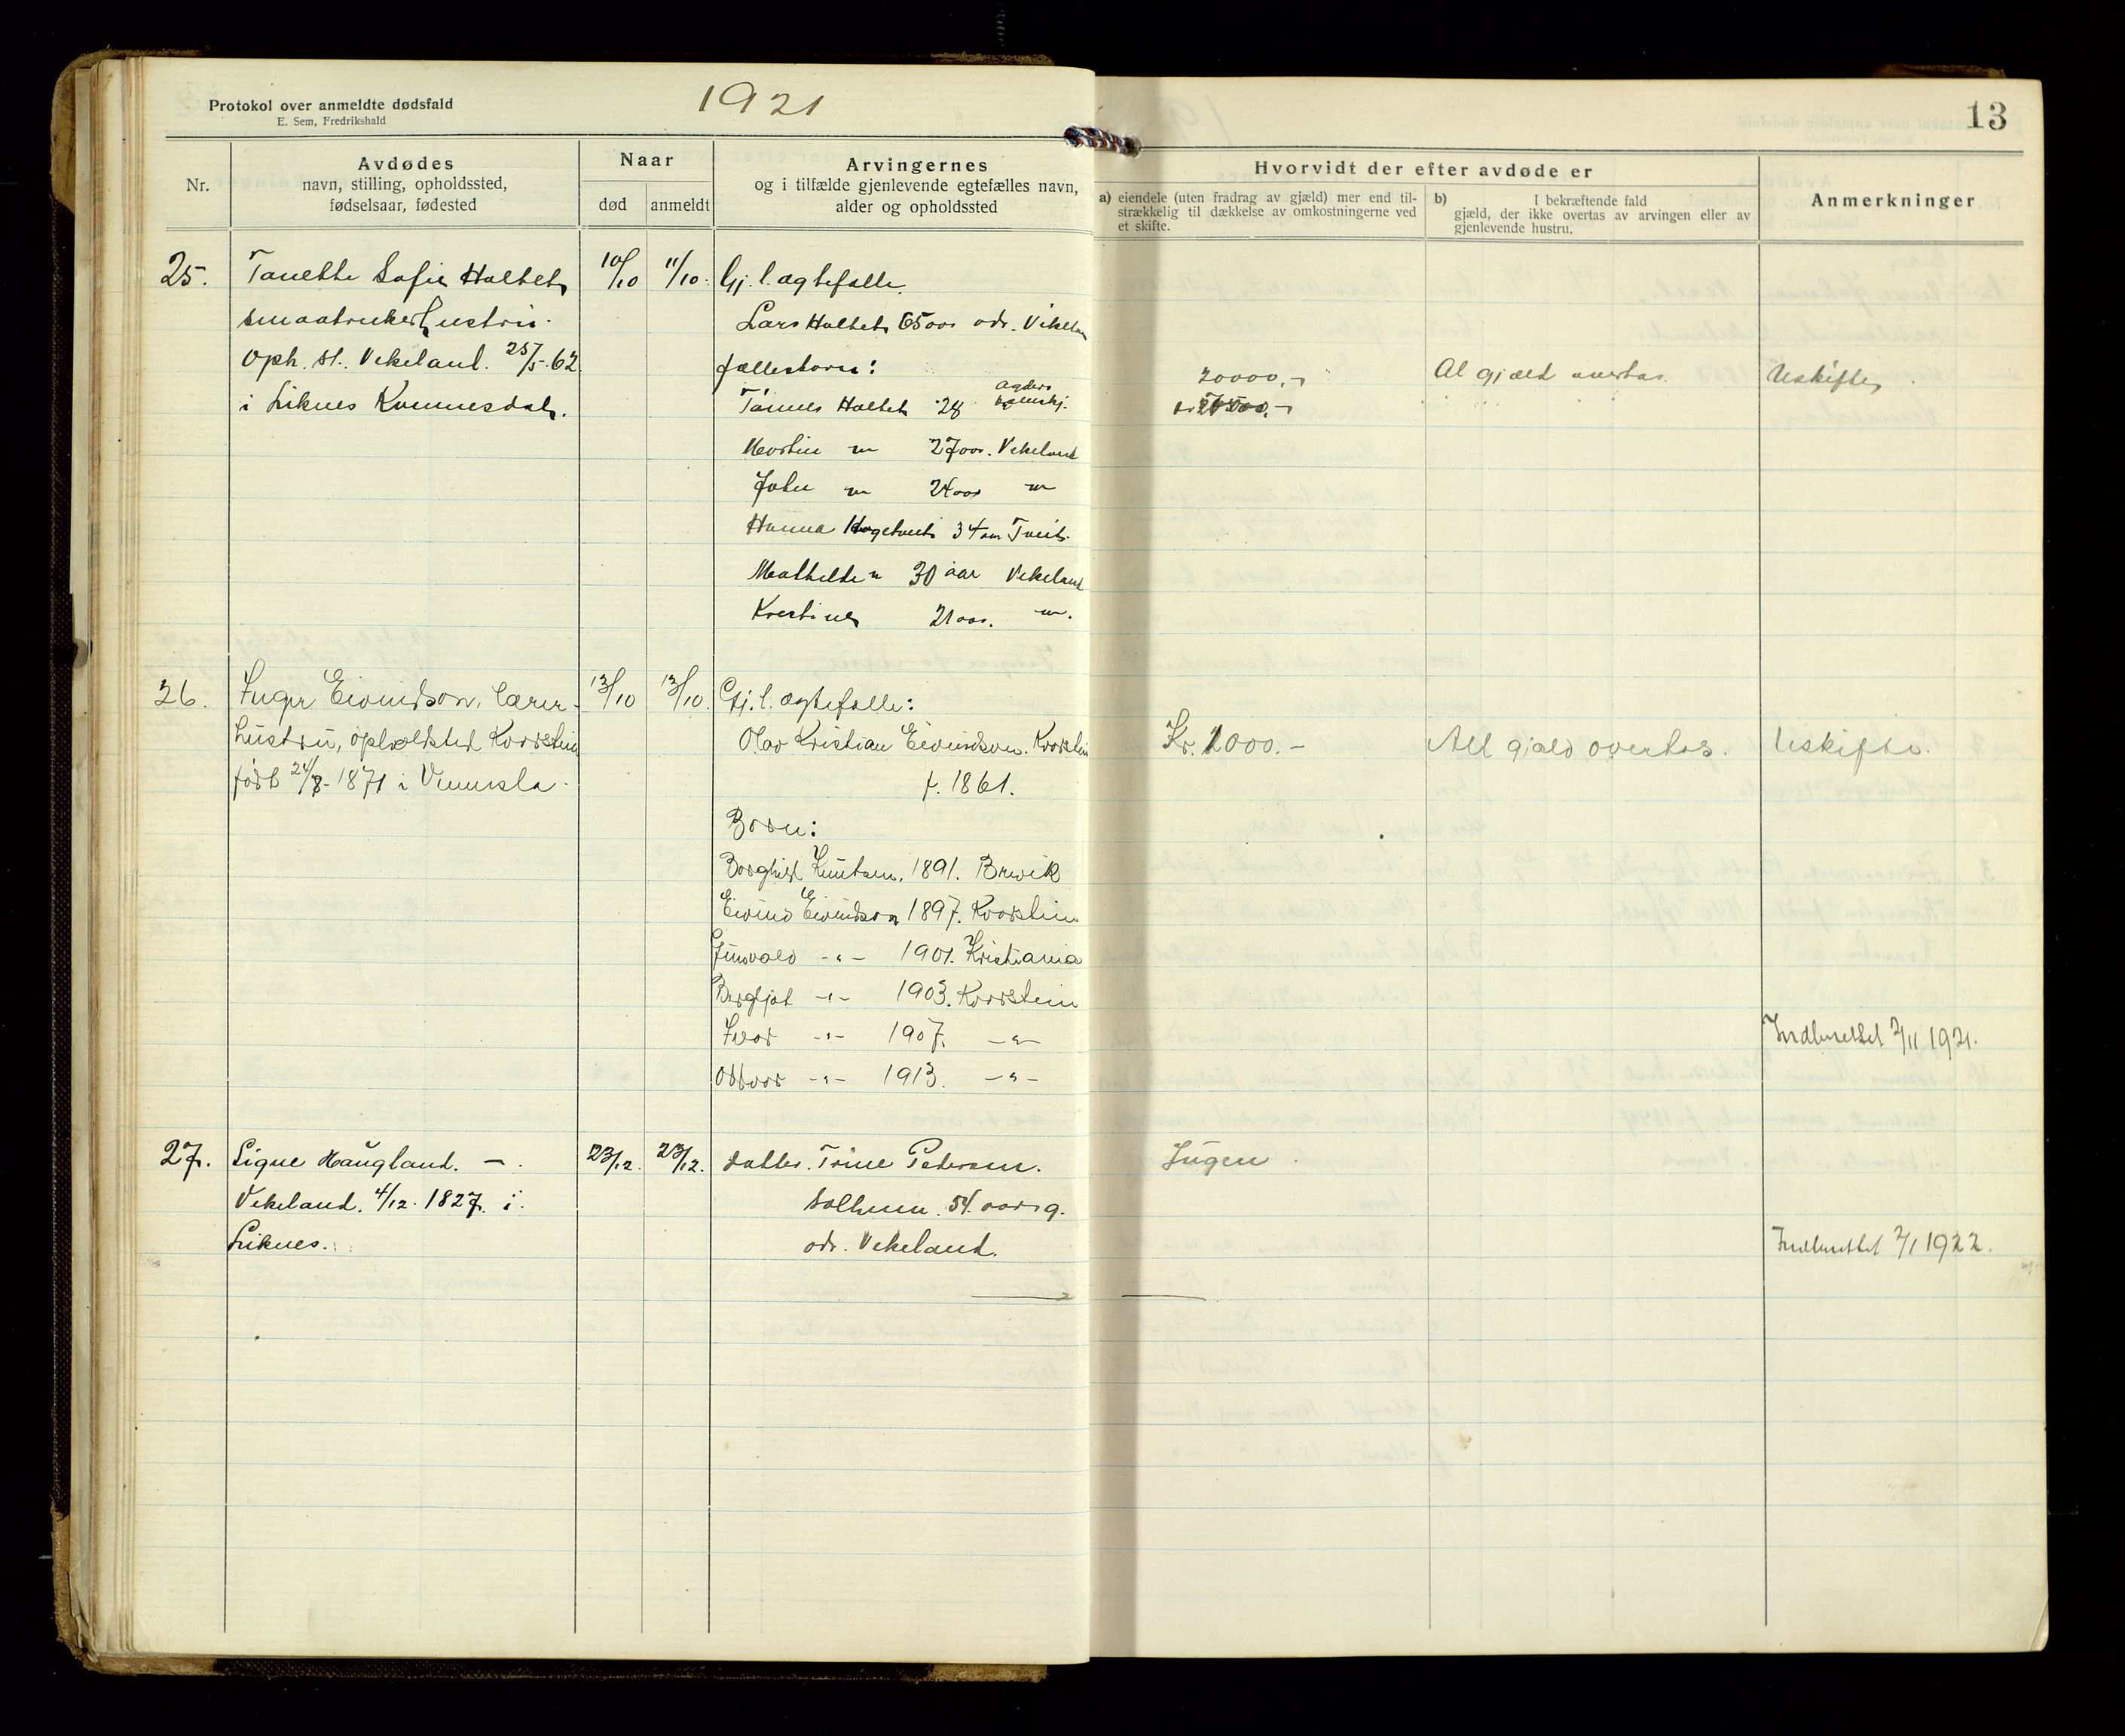 Protokol over anmeldte dødsfald
E. Sem, Fredrikshald
1921
13
Nr.
Avdødes
navn, stilling, opholdssted,
fødselsaar, fødested
Naar
død
anmeldt
Arvingernes
og i tilfælde gjenlevende egtefælles navn,
alder og opholdssted
Hvorvidt der efter avdøde er
a) eiendele (uten fradrag av gjæld) mer end til-
strækkelig til dækkelse av omkostningerne ved
et skifte.
b) I bekræftende fald
gjæld, der ikke overtas av arvingen eller av
gjenlevende hustru.
Anmerkninger
25. Tanette Sofie Holtet 10/10 11/10. Gj. l. egtefælle.
smaabrukerhustru. Lars Holtet 65 aar adr. Vikeland
Oph. st. Vikeland. 25/5-62 fællesbarn:
i Liknes Kvinnesdal. Tønnes Holtet 28 Agders 20000,- Al gjæld overtas. Uskifte
Martin " 27 aar. Vikeland
John " 24 aar "
Hanna 34 aar Tveit.
Mathilde " 30 aar Vikeland
Kristine 21 aar. "
26. Inger Eivindson, lærer- 13/10 13/10. Gj. l. egtefælle:
hustru, opholdsted Kvarstein Olav Kristian Eivindson. Kvarstein Kr. 2000.- All gjæld overtas. Uskifte.
født 24/8-1871 i Vennesla. f. 1861.
Børn:
Borghild Knutsen. 1891. Brevik
Eivind Eivindson 1897. Kvarstein
Gunvald -"- 1901. Kristiania
Bergljot -"- 1903. Kvarstein
Ivar -"- 1907. -"-
Oddvar -"- 1913. -"-
Indberettet 2/11 1921.
27. Signe Haugland. - 23/12. 23/12. datter. Trine Pedersen. Ingen
Vikeland. 4/12. 1827. i Solheim. 54. aarig.
Liknes. adr. Vikeland.
Indberettet 2/1 1922.